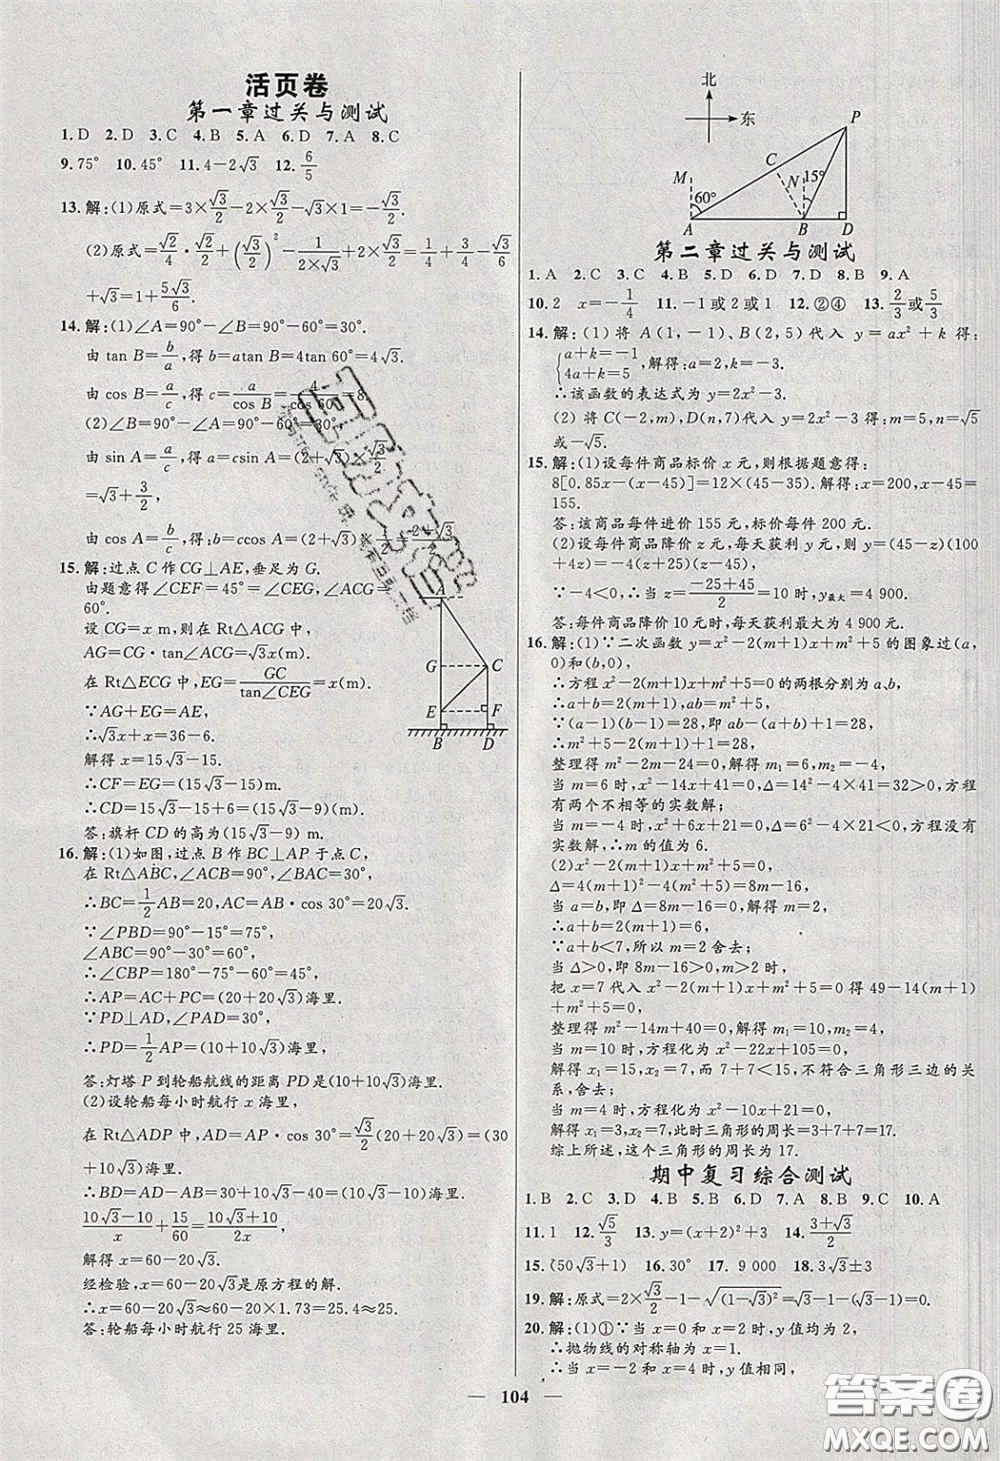 活页卷
第一章过关与测试
1.D 2.D 3.C 4.B 5.A 6.D 7.A 8.C
9.75° 10.45° 11.4-2√3 12.6/5
13.解:(1)原式=3×√3/2-√3/2-√3×1=-√3.
(2)原式=√2/4·√2/2+(√3/2)²-1/(2×√3/2)+2×√3/2=1/4+3/4-√3/3
+√3=1+5√3/6.
14.解:(1)∠A=90°-∠B=90°-60°=30°.
由 tan B=b/a,得 b=atan B=4tan 60°=4√3.
由 cos B=a/c,得 c=a/cos B=4/cos 60°=8.
(2)∠A=90°-∠B=90°-60°=30°.
由 sin A=a/c,得 a=csin A=(2+√3)×
=√3+3/2.
由 cos A=b/c,得 b=ccos A=(2+√3)
15.解:过点 C 作 CG⊥AE,垂足为 G.
由题意得∠CEF=45°=∠CEG,∠ACG=
60°.
设 CG=x m,则在 Rt△ACG 中,
AG=CG·tan∠ACG=√3x(m).
在 Rt△ECG 中,EG=GC/tan∠CEG=x(m).
∵AG+EG=AE,
∴√3x+x=36-6.
解得 x=15√3-15.
∴CF=EG=(15√3-15)(m).
∴CD=15√3-15+6=(15√3-9)(m).
答:旗杆 CD 的高为(15√3-9) m.
A G C E F B D
16.解:(1)如图,过点 B 作 BC⊥AP 于点 C,
在 Rt△ABC 中,∠ACB=90°,∠BAC=30°,
∴BC=1/2AB=20,AC=AB·cos 30°=20√3.
∵∠PBD=90°-15°=75°,
∠ABC=90°-30°=60°,
∴∠CBP=180°-75°-60°=45°.
∴AP=AC+PC=(20+20√3)海里.
∵PD⊥AD,∠PAD=30°,
∴PD=1/2AP=(10+10√3)海里.
答:灯塔 P 到轮船航线的距离 PD是(10+10√3)海里.
(2)设轮船每小时航行 x 海里,
在 Rt△ADP 中,AD=AP·cos 30°=√3/2(20+20√3)=(30
+10√3)海里.
∴BD=AD-AB=30+10√3-40=(10√3-10)海里.
(10√3-10)/x+15/60=(10√3+10)/2x.
解得 x=60-20√3.
经检验,x=60-20√3是原方程的解.
∴x=60-20√3≈60-20×1.73=25.4≈25.
答:轮船每小时航行 25 海里.
北
东
P M C N 15° 60° A B D
第二章过关与测试
1.A 2.C 3.C 4.B 5.D 6.D 7.D 8.B 9.A
10.2 x=-1/4 11.-1或 2 或 1 12.②④ 13.2/3或5/3
14.解:(1) 将 A(1,-1)、B(2,5)代入 y=ax²+k 得:
{a+k=-1 4a+k=5,解得:a=2,k=-3.
∴该函数的表达式为 y=2x²-3.
(2) 将 C(-2,m),D(n,7)代入 y=2x²-3 得:m=5,n=√5
或-√5.
15.解:(1)设每件商品标价 x 元,则根据题意得:
8[0.85x-(x-45)]=12×(45-35).解得:x=200,x-45=
155.
答:该商品每件进价 155 元,标价每件 200 元.
(2)设每件商品降价 z 元,每天获利 y 元,y=(45-z)(100
+4z)=-4z²+80z+4 500.
∵-4<0,∴当 z=(-25+45)/2=10 时,y最大=4 900.
答:每件商品降价 10元时,每天获利最大为 4 900元.
16.解:(1)∵二次函数 y=x²-2(m+1)x+m²+5 的图象过(a,
0)和(b,0),
∴方程 x²-2(m+1)x+m²+5=0 的两根分别为 a、b,
∴a+b=2(m+1),ab=m²+5.
∵(a-1)(b-1)=28,即 ab-(a+b)+1=28,
∴m²+5-2(m+1)+1=28,
整理得 m²-2m-24=0,解得 m₁=6,m₂=-4,
当 m=6 时,x²-14x+41=0,Δ=14²-4×41=32>0,方程
有两个不相等的实数解;
当 m=-4 时,x²+6x+21=0,Δ=6²-4×21<0,方程没有
实数解,∴m 的值为 6.
(2)x²-2(m+1)x+m²+5=0,
Δ=4(m+1)²-4(m²+5)=8m-16.
当 a=b,即 Δ=8m-16=0,解得 m=2.
∴a+b=2(m+1)=6,
∵a+b<7,所以 m=2舍去;
当 Δ>0,即 8m-16>0,解得 m>2.
把 x=7 代入 x²-2(m+1)x+m²+5=0 得 49-14(m+1)
+m²+5=0,
整理得 m²-14m+40=0,解得 m₁=10,m₂=4,
当 m=10 时,方程化为 x²-22x+105=0,
解得 x₁=15,x₂=7,而 7+7<15,不符合三角形三边的关
系,舍去;
当 m=4 时,方程化为 x²-10x+21=0,
解得 x₁=3,x₂=7,此时三角形的周长=3+7+7=17.
综上所述,这个三角形的周长为 17.
期中复习综合测试
1.B 2.C 3.D 4.B 5.D 6.D 7.A 8.B 9.C 10.A
11.1 12.√5/3 13.y=(x+2)²+3 14.(3+√3)/2
15.(50√3+1) 16.30° 17. 9 000 18.√3±3
19.解:原式=2×√3/2-1-√(1-√3)²=√3-1-√3+1=0.
20.解:(1)①∵当 x=0 和 x=2 时,y 值均为 2,
∴抛物线的对称轴为 x=1.
∴当 x=-2 和 x=4 时,y 值相同,
104
答案圈
MXQE.COM